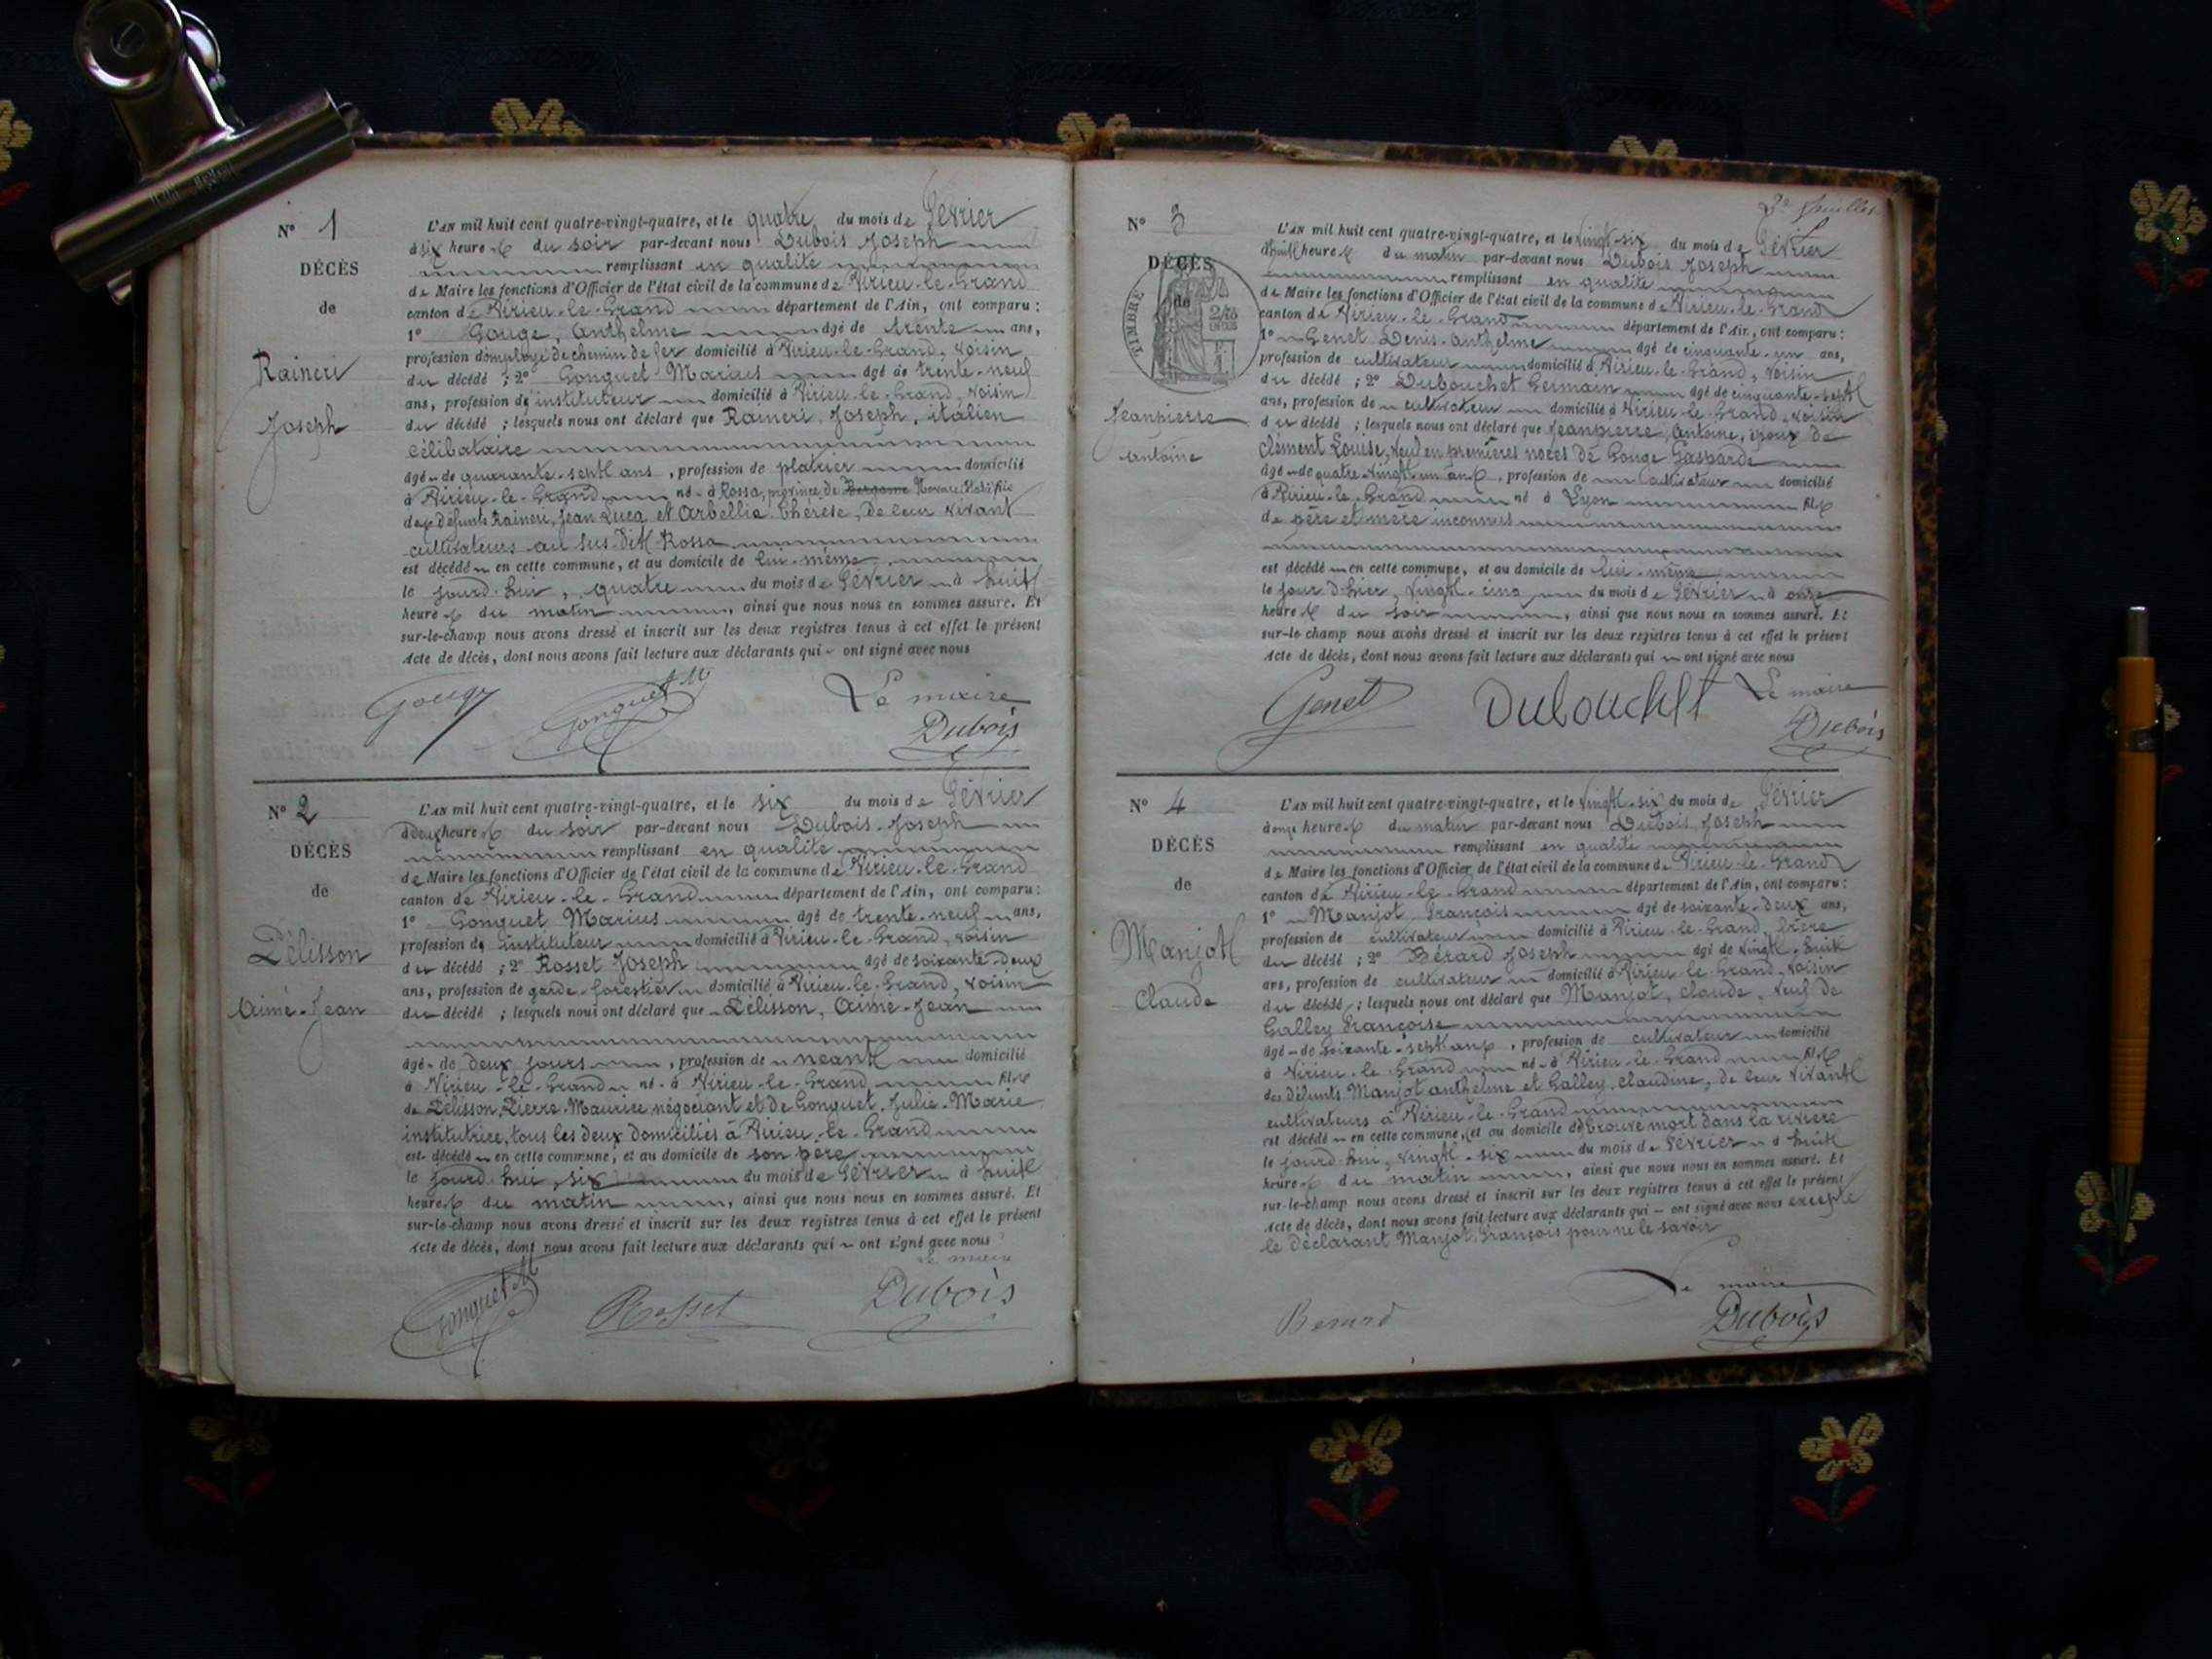 N° 1
DÉCÈS
de
Raineri
Joseph
L'AN mil huit cent quatre-vingt-quatre, et le quatre du mois de Février
à six heures du soir par-devant nous Dubois Joseph
remplissant en qualité
de Maire les fonctions d'Officier de l'état civil de la commune de Virieu-le-Grand
canton de Virieu-le-Grand département de l'Ain, ont comparu :
1° Gouge, Anthelme âgé de trente ans,
profession d'employé de chemin de fer domicilié à Virieu-le-Grand, voisin
du décédé ; 2° Gonguet Marius âgé de trente-neuf
ans, profession de instituteur domicilié à Virieu-le-Grand, voisin
du décédé ; lesquels nous ont déclaré que Raineri, Joseph, italien
célibataire
âgé de quarante-sept ans, profession de platrier domicilié
à Virieu-le-Grand né à Rossa, province de Bergame Novare, Italie fils
des défunts Raineri, Jean Luca et Arbellia Thérèse, de leur vivant
cultivateurs au sus dit Rossa
est décédé en cette commune, et au domicile de lui-même
le jourd'hui, quatre du mois de Février à huit
heures du matin, ainsi que nous nous en sommes assuré. Et
sur-le-champ nous avons dressé et inscrit sur les deux registres tenus à cet effet le présent
Acte de décès, dont nous avons fait lecture aux déclarants qui ont signé avec nous
Gouge Gonguet M Le maire
Dubois
N° 2
DÉCÈS
de
Pélisson
Aimé-Jean
L'AN mil huit cent quatre-vingt-quatre, et le six du mois de Février
à deux heures du soir par-devant nous Dubois Joseph
remplissant en qualité
de Maire les fonctions d'Officier de l'état civil de la commune de Virieu-le-Grand
canton de Virieu-le-Grand département de l'Ain, ont comparu :
1° Gonguet Marius âgé de trente-neuf ans,
profession de instituteur domicilié à Virieu-le-Grand, voisin
du décédé ; 2° Rosset Joseph âgé de soixante-deux
ans, profession de garde-forestier domicilié à Virieu-le-Grand, voisin
du décédé ; lesquels nous ont déclaré que Pélisson, Aimé-Jean
âgé de deux jours, profession de néant domicilié
à Virieu-le-Grand né à Virieu-le-Grand fils
de Pélisson, Pierre-Maurice négociant et de Gonguet, Julie-Marie
institutrice, tous les deux domiciliés à Virieu-le-Grand
est décédé en cette commune, et au domicile de son père
le jourd'hui, six du mois de Février à huit
heures du matin, ainsi que nous nous en sommes assuré. Et
sur-le-champ nous avons dressé et inscrit sur les deux registres tenus à cet effet le présent
Acte de décès, dont nous avons fait lecture aux déclarants qui ont signé avec nous
Le maire
Gonguet M Rosset Dubois
3e feuillet
N° 3
DÉCÈS
de
TIMBRE
Jeanpierre
Antoine
L'AN mil huit cent quatre-vingt-quatre, et le vingt-six du mois de Février
à huit heures du matin par-devant nous Dubois Joseph
remplissant en qualité
de Maire les fonctions d'Officier de l'état civil de la commune de Virieu-le-Grand
canton de Virieu-le-Grand département de l'Ain, ont comparu :
1° Genet Denis-Anthelme âgé de cinquante-un ans,
profession de cultivateur domicilié à Virieu-le-Grand, voisin
du décédé ; 2° Dubouchet Germain âgé de cinquante-sept
ans, profession de cultivateur domicilié à Virieu-le-Grand, voisin
du décédé ; lesquels nous ont déclaré que Jeanpierre, Antoine, époux de
Clément Louise, veuf en premières noces de Gouge Gasparde
âgé de quatre-vingt-un ans, profession de cultivateur domicilié
à Virieu-le-Grand né à Lyon fils
de père et mère inconnus
est décédé en cette commune, et au domicile de lui-même
le jour d'hier, vingt-cinq du mois de Février à onze
heures du soir, ainsi que nous nous en sommes assuré. Et
sur-le-champ nous avons dressé et inscrit sur les deux registres tenus à cet effet le présent
Acte de décès, dont nous avons fait lecture aux déclarants qui ont signé avec nous
Genet Dubouchet Le maire
Dubois
N° 4
DÉCÈS
de
Manjot
Claude
L'AN mil huit cent quatre-vingt-quatre, et le vingt-six du mois de Février
à onze heures du matin par-devant nous Dubois Joseph
remplissant en qualité
de Maire les fonctions d'Officier de l'état civil de la commune de Virieu-le-Grand
canton de Virieu-le-Grand département de l'Ain, ont comparu :
1° Manjot François âgé de soixante-deux ans,
profession de cultivateur domicilié à Virieu-le-Grand, frère
du décédé ; 2° Bérard Joseph âgé de vingt-huit
ans, profession de cultivateur domicilié à Virieu-le-Grand, voisin
du décédé ; lesquels nous ont déclaré que Manjot, Claude, veuf de
Galley Françoise
âgé de soixante-sept ans, profession de cultivateur domicilié
à Virieu-le-Grand né à Virieu-le-Grand fils
des défunts Manjot Anthelme et Galley, Claudine, de leur vivant
cultivateurs à Virieu-le-Grand
est décédé en cette commune, (et au domicile de) trouvé mort dans la rivière
le jourd'hui, vingt-six du mois de Février à huit
heures du matin, ainsi que nous nous en sommes assuré. Et
sur-le-champ nous avons dressé et inscrit sur les deux registres tenus à cet effet le présent
Acte de décès, dont nous avons fait lecture aux déclarants qui ont signé avec nous excepté
le déclarant Manjot, François pour ne le savoir
Le maire
Berard Dubois